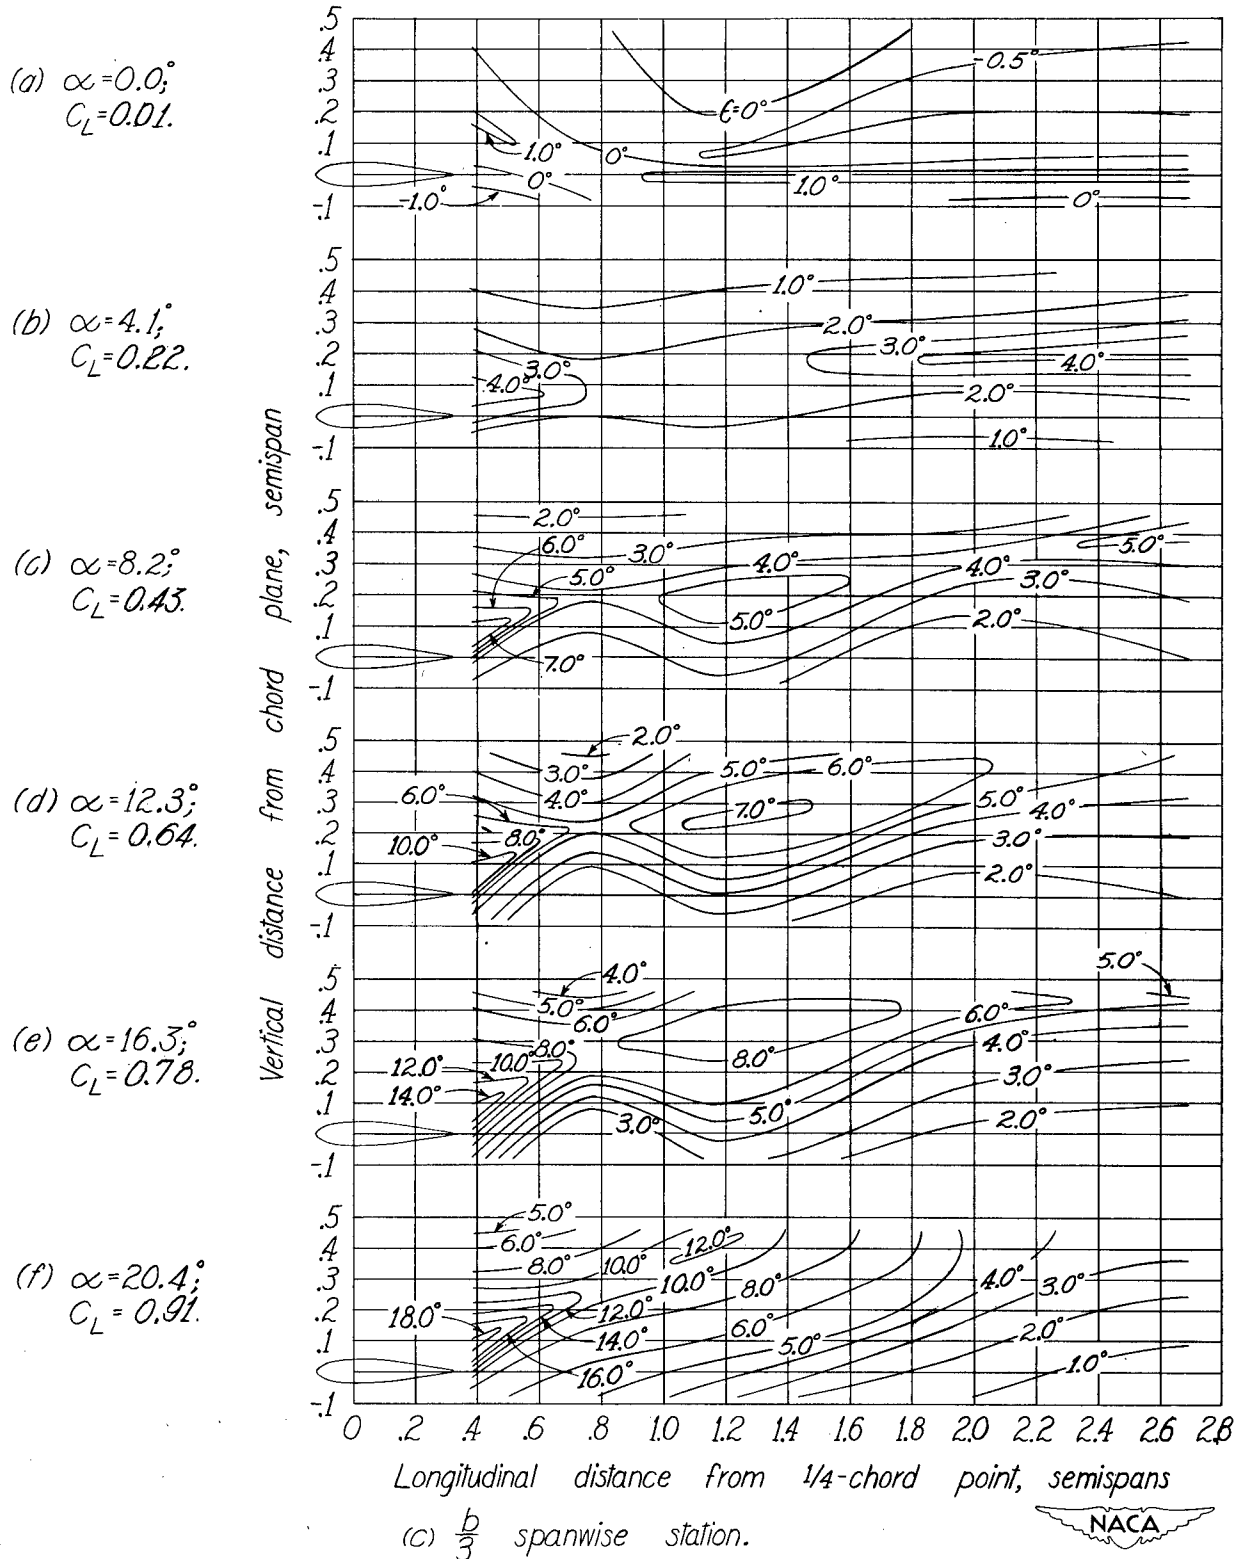 (a) α=0.0°;
C_L=0.01.
.5
.4
.3
.2
.1
0
-.1
-0.5°
ε=0°
1.0°
0°
0°
1.0°
-1.0°
0°
(b) α=4.1°;
C_L=0.22.
.5
.4
.3
.2
.1
0
-.1
1.0°
2.0°
3.0°
3.0°
4.0°
4.0°
2.0°
1.0°
(c) α=8.2°;
C_L=0.43.
.5
.4
.3
.2
.1
0
-.1
2.0°
6.0°
3.0°
5.0°
4.0°
5.0°
4.0°
3.0°
5.0°
2.0°
7.0°
(d) α=12.3°;
C_L=0.64.
.5
.4
.3
.2
.1
0
-.1
2.0°
3.0°
5.0°
6.0°
6.0°
4.0°
7.0°
5.0°
4.0°
8.0°
3.0°
10.0°
2.0°
(e) α=16.3°;
C_L=0.78.
.5
.4
.3
.2
.1
0
-.1
5.0°
4.0°
5.0°
6.0°
6.0°
4.0°
8.0°
10.0°
8.0°
12.0°
3.0°
14.0°
5.0°
3.0°
2.0°
(f) α=20.4°;
C_L=0.91.
.5
.4
.3
.2
.1
0
-.1
5.0°
6.0°
12.0°
8.0°
10.0°
10.0°
8.0°
4.0°
3.0°
18.0°
12.0°
6.0°
2.0°
14.0°
5.0°
16.0°
1.0°
Vertical distance from chord plane, semispan
0 .2 .4 .6 .8 1.0 1.2 1.4 1.6 1.8 2.0 2.2 2.4 2.6 2.8
Longitudinal distance from 1/4-chord point, semispans
(c) b/3 spanwise station.
NACA